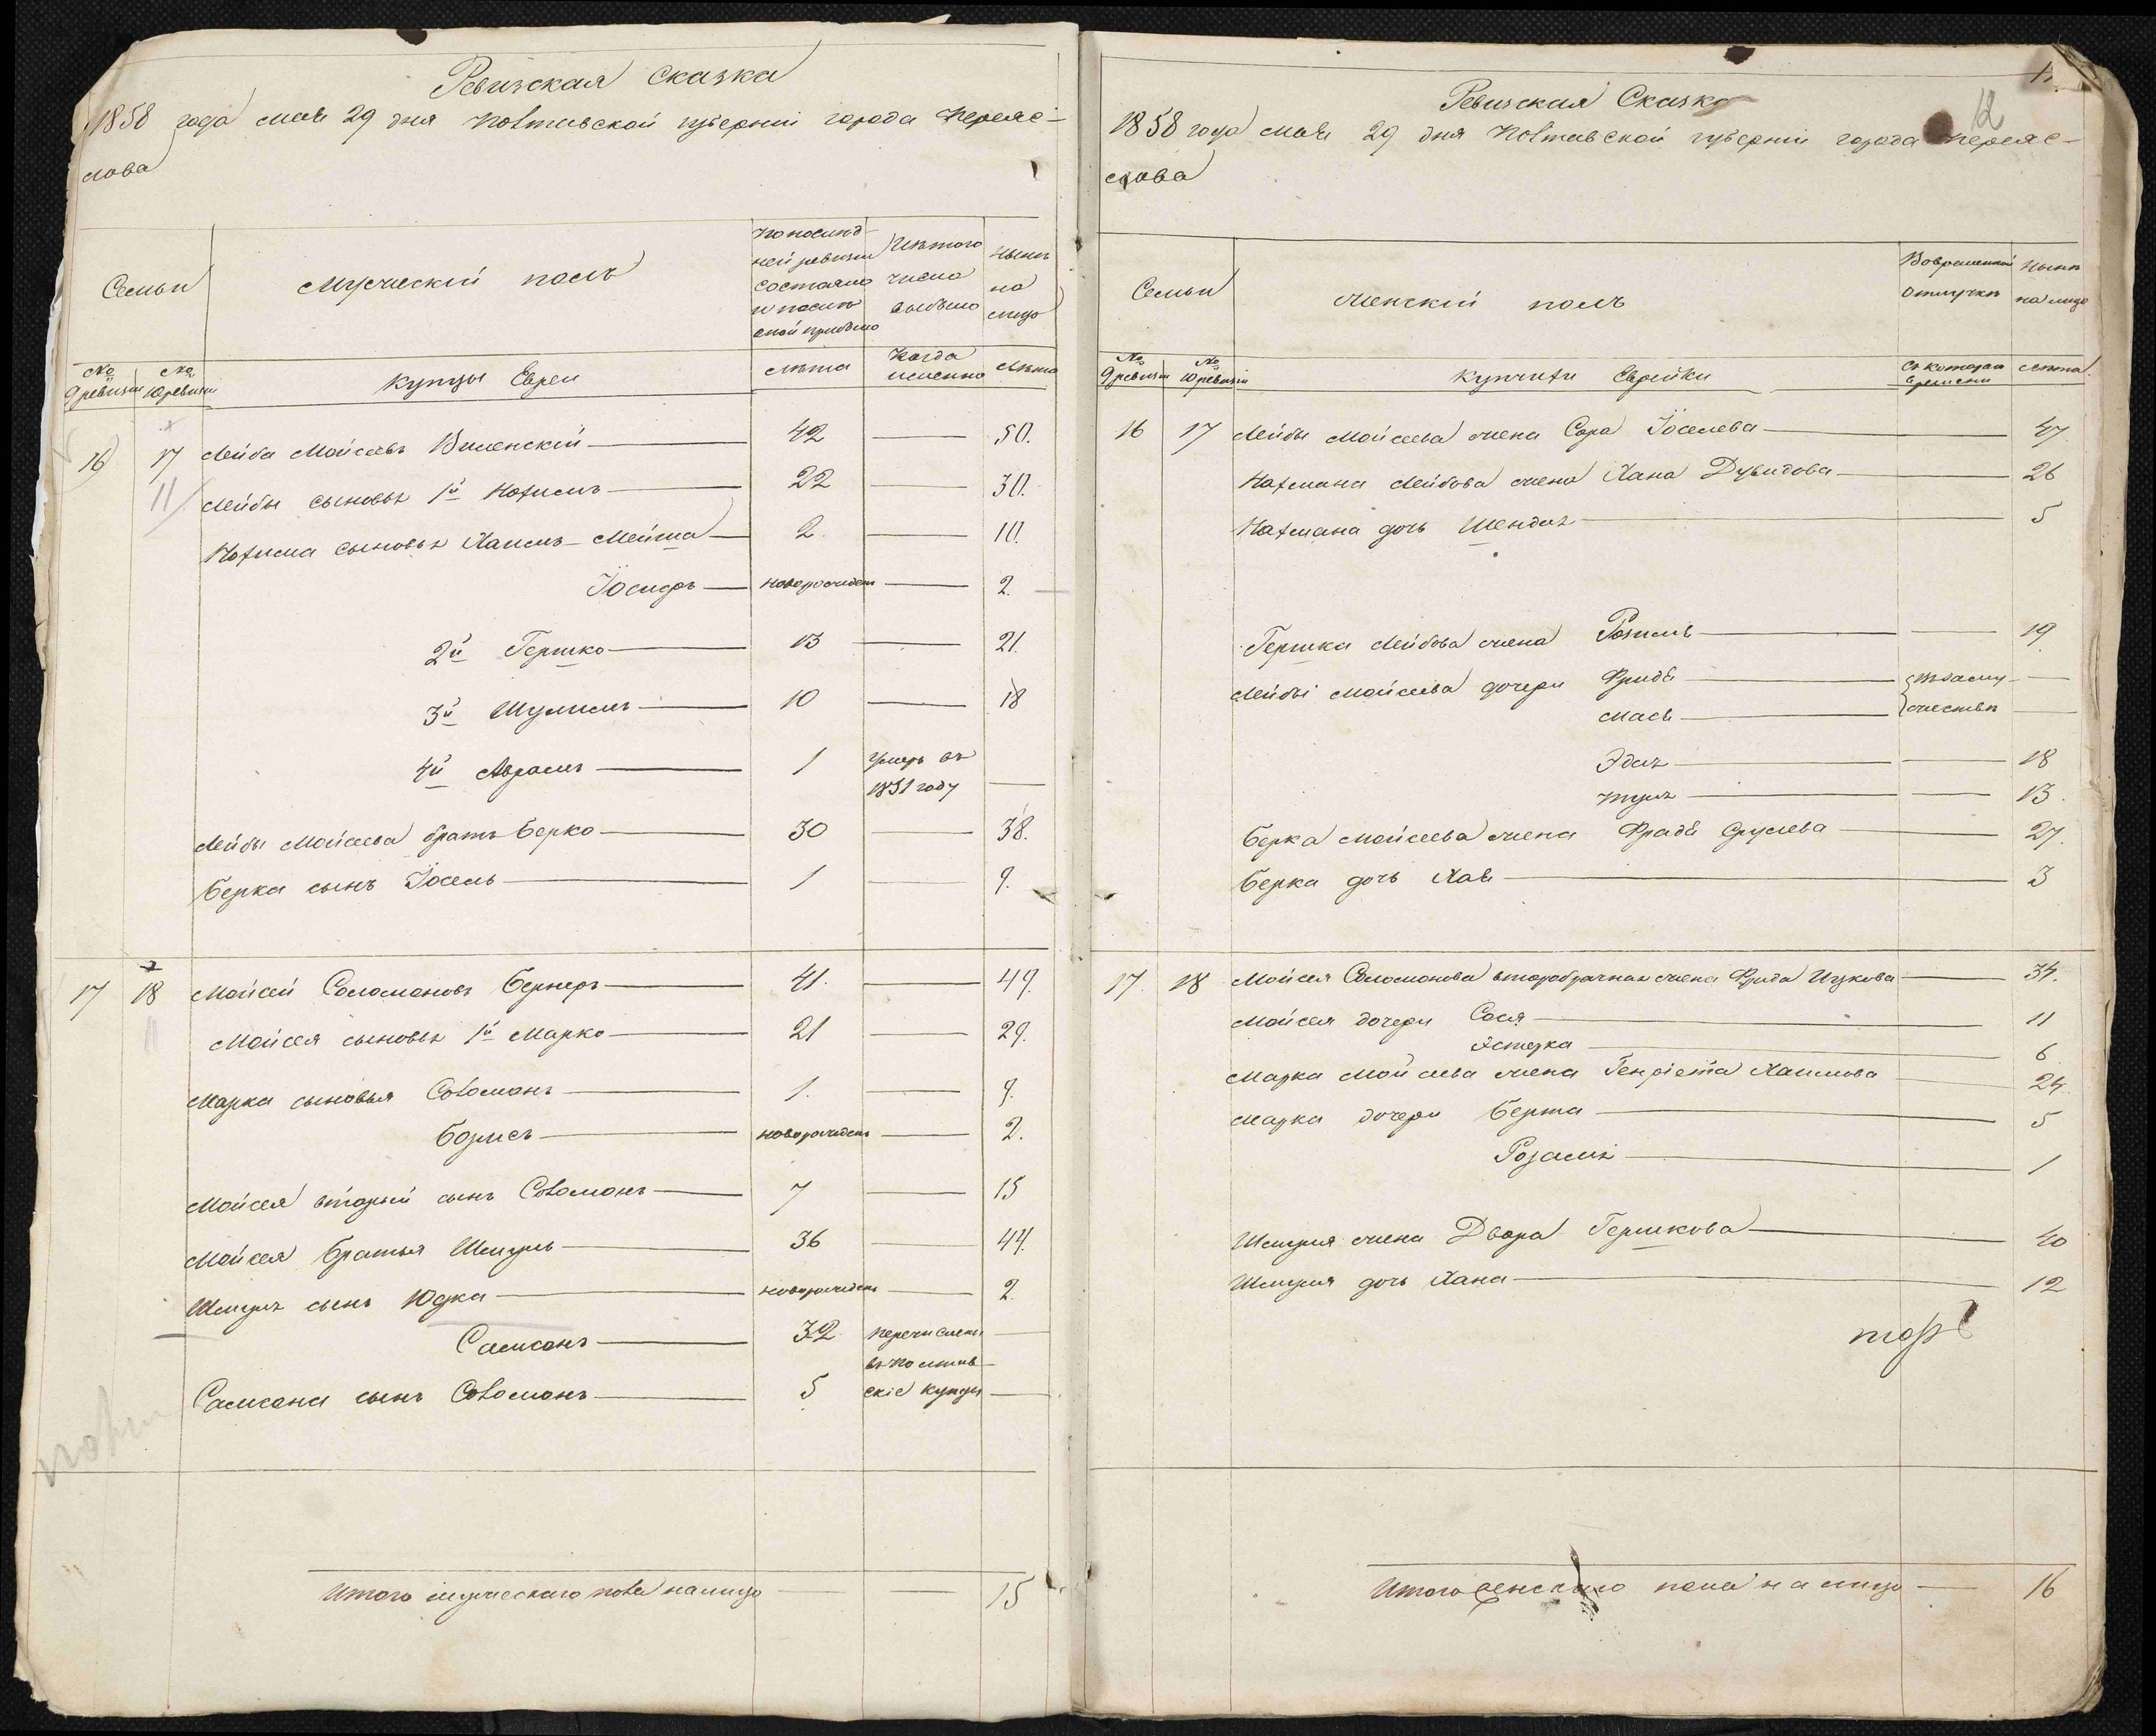 Ревизская Сказка
1858 года мая 29 дня Полтавской губерніи города Переяс-
лова
Семьи
Мужескій полъ
По послѣд-
ней ревизіи
состояло
и послѣ
оной прибыло
Изъ того
числа
выбыло
Нынѣ
на
лицо
№
9 ревизіи
№
10 ревизіи
Купцы Евреи
лѣта
Когда
именно
Лѣта
16 17 Лейба Мойсеевъ Виленскій 42 50.
11 Лейбы сыновья 1й Нохимъ 22 30.
Нохима сыновья Хаимъ-Мейша 2. 10.
Іосифъ новорожденъ 2.
2й Гершко 13 21.
3й Шулимъ 10 18
4й Аврамъ 1 Умеръ въ
1851 году
Лейбы Мойсеева братъ Берко 30 38.
Берка сынъ Іосель 1 9.
17 18 Мойсей Соломоновъ Бернеръ 41. 49.
Мойсея сыновья 1й Марко 21 29.
Марка сыновья Соломонъ 1. 9.
Борисъ новорожденъ 2.
Мойсея вторый сынъ Соломонъ 7 15
Мойсея братья Шмуль 36 44.
Шмуля сынъ Юдка новорожденъ 2
Самсонъ 32 перечислены
въ Полтав-
Самсона сынъ Соломонъ 5 скіе купцы
Итого мужескаго пола на лицо 15
12
Ревизская Сказка
1858 года мая 29 дня Полтавской губерніи города Переяс-
лова
Семьи
женскій полъ
Во временной
отлучкѣ
Нынѣ
на лицо
№
9 ревизіи
№
10 ревизіи
купчихи Еврейки
Съ котораго
времени
лѣта.
16 17 Лейбы Мойсеева жена Сора Іоселева 47.
Нахмана Лейбова жена Хана Дувидова 26
Нахмана дочь Шендля 5
Гершка Лейбова жена Розимъ 19
Лейбы Мойсеева дочери Фрида въ заму-
Мася жествѣ
Эдля 18
13.
Берка Мойсеева жена Фрадя Срулева 27.
Берка дочь Хая 3
17 18 Мойсея Соломонова второбрачная жена Фрида Ицкова 34.
Мойсея дочери Сося 11
Эстерка 6
Марка Мойсеева жена Генріета Хаимова 24
Марка дочери Берта 5
Розалія 1
Шмуля жена Двора Гершкова 40
Шмуля дочь Хана 12
Итого женскаго пола на лицо 16